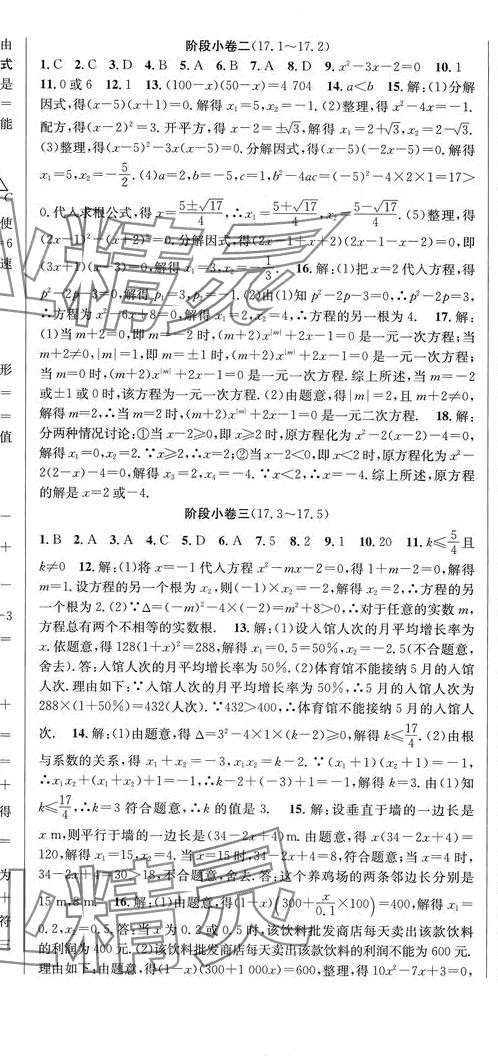 阶段小卷二(17.1～17.2)
1. C 2. C 3. D 4. D 5. A 6. B 7. D 8. D 9. x²-3x-2=0 10. 1
11. 0或6 12. 1 13. (100-x)(50-x)=4 704 14. a<b 15. 解:(1)分解
因式,得(x-5)(x+1)=0. 解得 x₁=5,x₂=-1. (2)整理,得 x²-4x=-1.
配方,得(x-2)²=3. 开平方,得 x-2=±√3,解得 x₁=2+√3,x₂=2-√3.
(3)整理,得(x-5)²-3x(x-5)=0. 分解因式,得(x-5)(-2x-5)=0. 解得
x₁=5,x₂=-5/2. (4)a=2,b=-5,c=1,b²-4ac=(-5)²-4×2×1=17>
0. 代入求根公式,得 x=(5±√17)/4,∴x₁=(5+√17)/4,x₂=(5-√17)/4. (5)整理,得
(2x-1)²-(x+2)²=0. 分解因式,得(2x-1+x+2)(2x-1-x-2)=0,即
(3x+1)(x-3)=0,解得 x₁=3,x₂=-1/3. 16. 解:(1)把 x=2 代入方程,得
p²-2p-3=0,解得 p₁=3,p₂=-1. (2)由(1)知 p²-2p-3=0,∴p²-2p=3,
∴方程为 x²-6x+8=0,解得 x₁=2,x₂=4,∴方程的另一根为 4. 17. 解:
(1)当 m+2=0,即 m=-2 时,(m+2)x|m|+2x-1=0 是一元一次方程;当
m+2≠0,|m|=1,即 m=±1 时,(m+2)x|m|+2x-1=0 是一元一次方程;
当 m=0 时,(m+2)x|m|+2x-1=0 是一元一次方程. 综上所述,当 m=-2
或±1 或 0 时,该方程为一元一次方程. (2)由题意,得|m|=2,且 m+2≠0,
解得 m=2,∴当 m=2 时,(m+2)x|m|+2x-1=0 是一元二次方程. 18. 解:
分两种情况讨论:①当 x-2≥0,即 x≥2 时,原方程化为 x²-2(x-2)-4=0,
解得 x₁=0,x₂=2. ∵x≥2,∴x=2;②当 x-2<0,即 x<2 时,原方程化为 x²-
2(2-x)-4=0,解得 x₃=2,x₄=-4. ∵x<2,∴x=-4. 综上所述,原方程
的解是 x=2 或-4.
阶段小卷三(17.3～17.5)
1. B 2. A 3. A 4. C 5. D 6. A 7. 5 8. 2 9. 1 10. 20 11. k≤5/4且
k≠0 12. 解:(1)将 x=-1 代入方程 x²-mx-2=0,得 1+m-2=0,解得
m=1. 设方程的另一个根为 x₂,则(-1)×x₂=-2,解得 x₂=2,∴方程的另
一个根为 2. (2)∵Δ=(-m)²-4×(-2)=m²+8>0,∴对于任意的实数 m,
方程总有两个不相等的实数根. 13. 解:(1)设入馆人次的月平均增长率为
x. 依题意,得 128(1+x)²=288,解得 x₁=0.5=50%,x₂=-2.5(不合题意,
舍去). 答:入馆人次的月平均增长率为 50%. (2)体育馆不能接纳 5 月的入馆
人次. 理由如下:∵入馆人次的月平均增长率为 50%,∴5 月的入馆人次为
288×(1+50%)=432(人次). ∵432>400,∴体育馆不能接纳 5 月的入馆人
次. 14. 解:(1)由题意,得 Δ=3²-4×1×(k-2)≥0,解得 k≤17/4. (2)由根
与系数的关系,得 x₁+x₂=-3,x₁x₂=k-2. ∵(x₁+1)(x₂+1)=-1,
∴x₁x₂+(x₁+x₂)+1=-1,∴k-2+(-3)+1=-1,解得 k=3. 由(1)知
k≤17/4,∴k=3 符合题意,∴k 的值是 3. 15. 解:设垂直于墙的一边长是
x m,则平行于墙的一边长是(34-2x+4)m. 由题意,得 x(34-2x+4)=
120,解得 x₁=15,x₂=4. 当 x=15 时,34-2x+4=8,符合题意;当 x=4 时,
34-2x+4=30>18,不合题意,舍去. 答:这个养鸡场的两条邻边长分别是
15 m,8 m. 16. 解:(1)由题意,得(1-x)(300+x/0.1×100)=400,解得 x₁=
0.2,x₂=0.5. 答:当 x 为 0.2 或 0.5 时,该饮料批发商店每天卖出该款饮料
的利润为 400 元. (2)该饮料批发商店每天卖出该款饮料的利润不能为 600 元.
理由如下:由题意,得(1-x)(300+1 000x)=600,整理,得 10x²-7x+3=0,
业精灵
业精灵
由
式
是
=
能
C
使
=6
速
形
=
值
-
+
-3
+
=
得
为
符
三